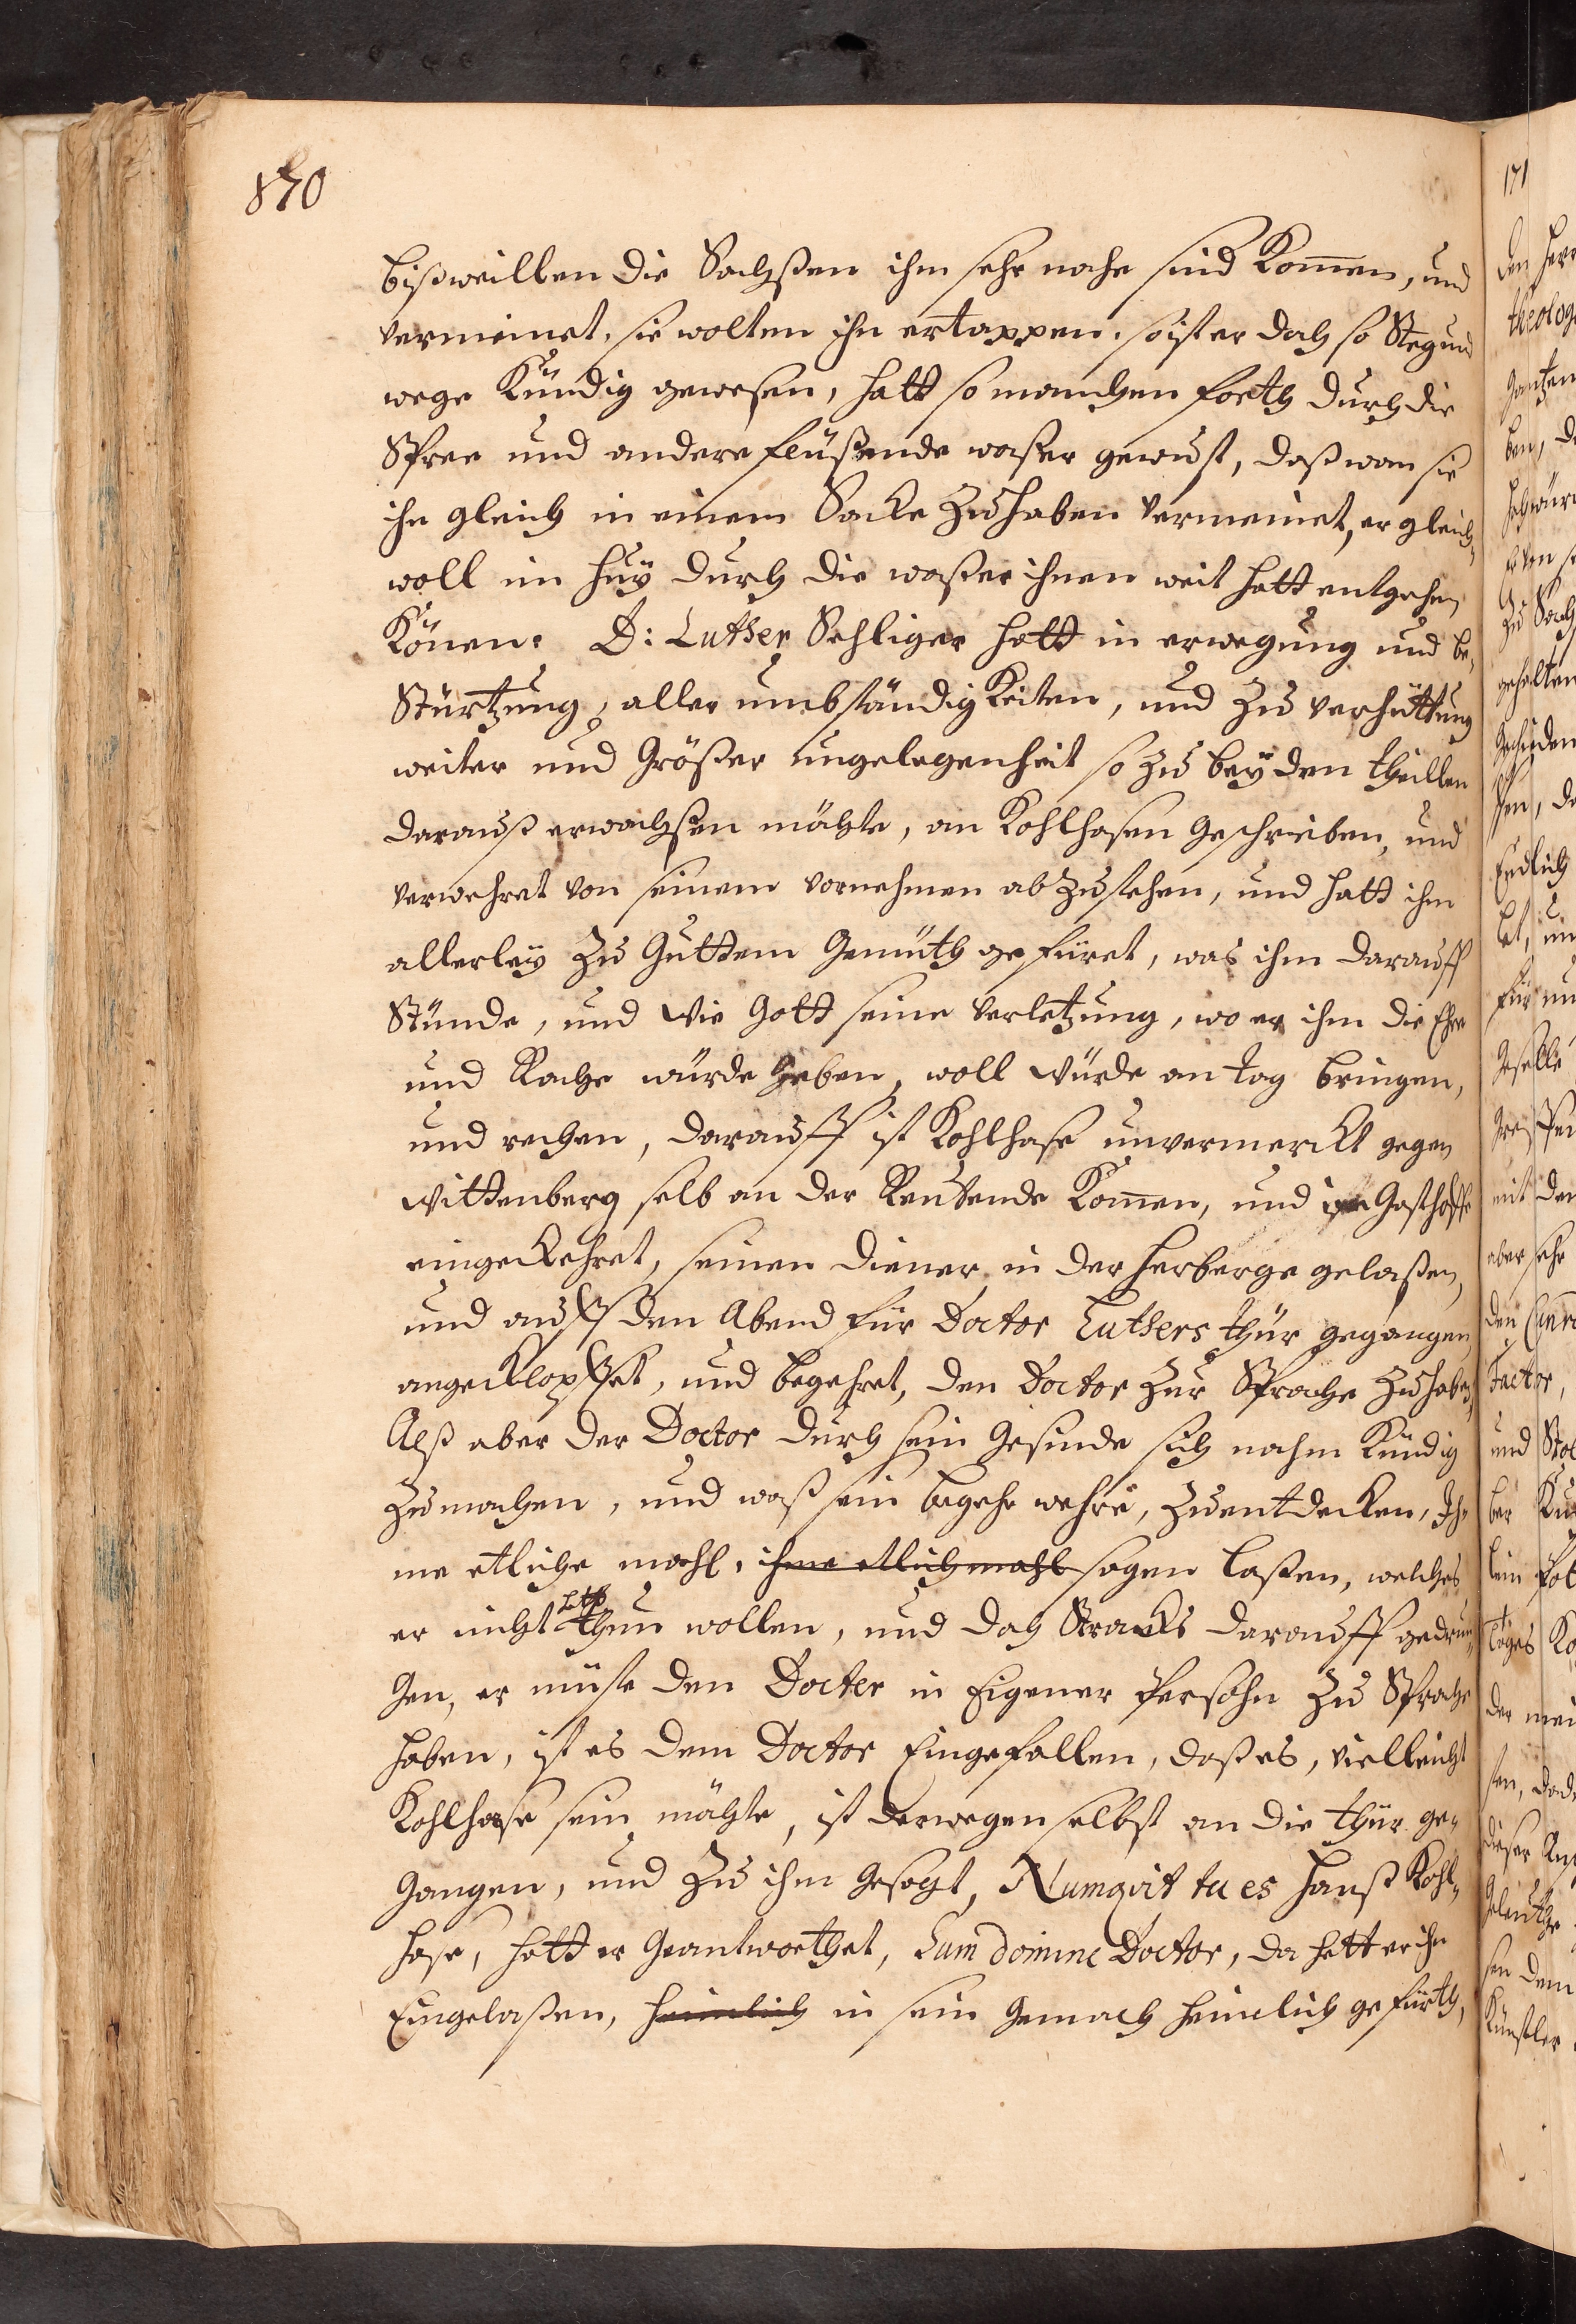 170
bißweillen die Sachßen ihm sehr nahe sind Komen, und
vermeinet, sie wolten ihn ertappen, so ist er doch so Steg und
wege Kündig gewesen, hatt so manchen forth durch die
Spree und andere flüßende waßer gewust, daß wan sie
ihn gleich in einem Sacke zu haben vermeinet, er gleich-
woll im huy durch die waßer ihnen weit hatt entgehn
Könen. D: Luther Sehliger hatt in erwegung und be-
Stürtzung, aller umbständigkeiten, und zu verhüttung
weiter und Größer ungelegenheit so zu beyden theillen
darauß erwachßen möchte, an Kohlhasen geschrieben, und
verwehret von seinem vornehmen abzustehen, und hatt ihm
allerley zu Guttem Gemüth gefüret, was ihm darauff
Stünde, und wie Gott seine verletzung, wo er ihm die Ehre
und Rache würde geben, woll würde an tag bringen,
und rechen, darauff ist Kohlhase unvermerckt gegen
Wittenberg selb an der Reutende Komen, und im Gasthoffe
eingeckehret, seinen diener in der Herberge gelaßen,
und auff den Abend für Doctor Luthers thür gegangen,
angecklopffet, und begehret, den Doctor zur Sprache zu haben,
Alß aber der Doctor durch sein Gesinde sich nahm Kündig
zu machen, und waß sein begehr wehre, zu entdecken, Ih-
me etliche mahl, ihme etlich mahl sagen laßen, welches
er nicht thun wollen, und doch Stracks darauff gedrun-
gen, er müste den Docter in Eigener Persohn zu Sprache
haben, ist es dem Doctor Eingefallen, daß es, vielleicht
Kohlhase sein möchte, ist derwegen selbst an die thür ge-
gangen, und zu ihm gesagt, Numqvit tu es Hanß Kohl-
hase, hatt er Geantworthet, Sum domine Doctor, da hatt er ihn
Eingelaßen, heimlich in sein Gemach heimlich gefürth,
171
den Herr
theolog
gantzen
ben, d
zu Sach
gehalten
Endlich
für
Geselle
mit den
aber sehr
Factor,
und
tages
der
dieser
sen dem
Künstler